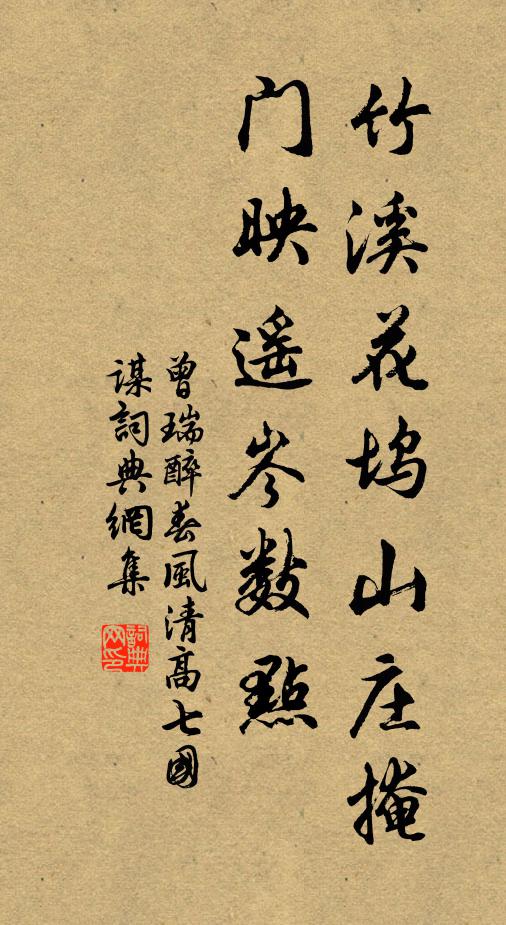 竹溪花坞山庄掩
门映遥岑数點
曾瑞醉春風清高七國
谋詞典網集
詞典
网印